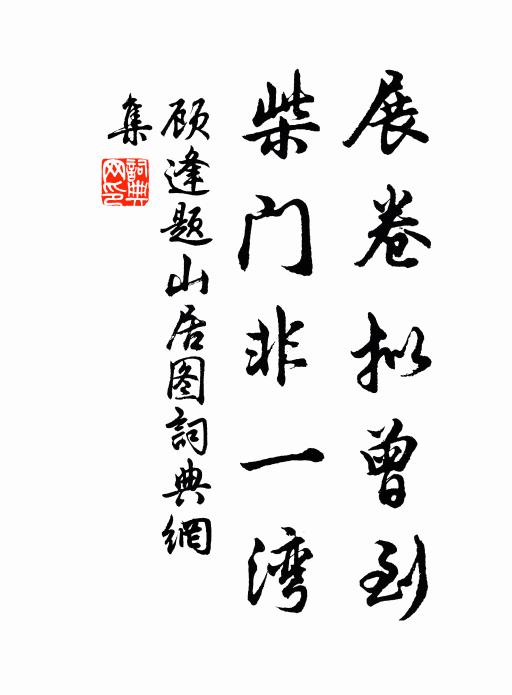 展卷拟曾到
柴门非一湾
顾逢题山居图詞典網
集
詞典網印